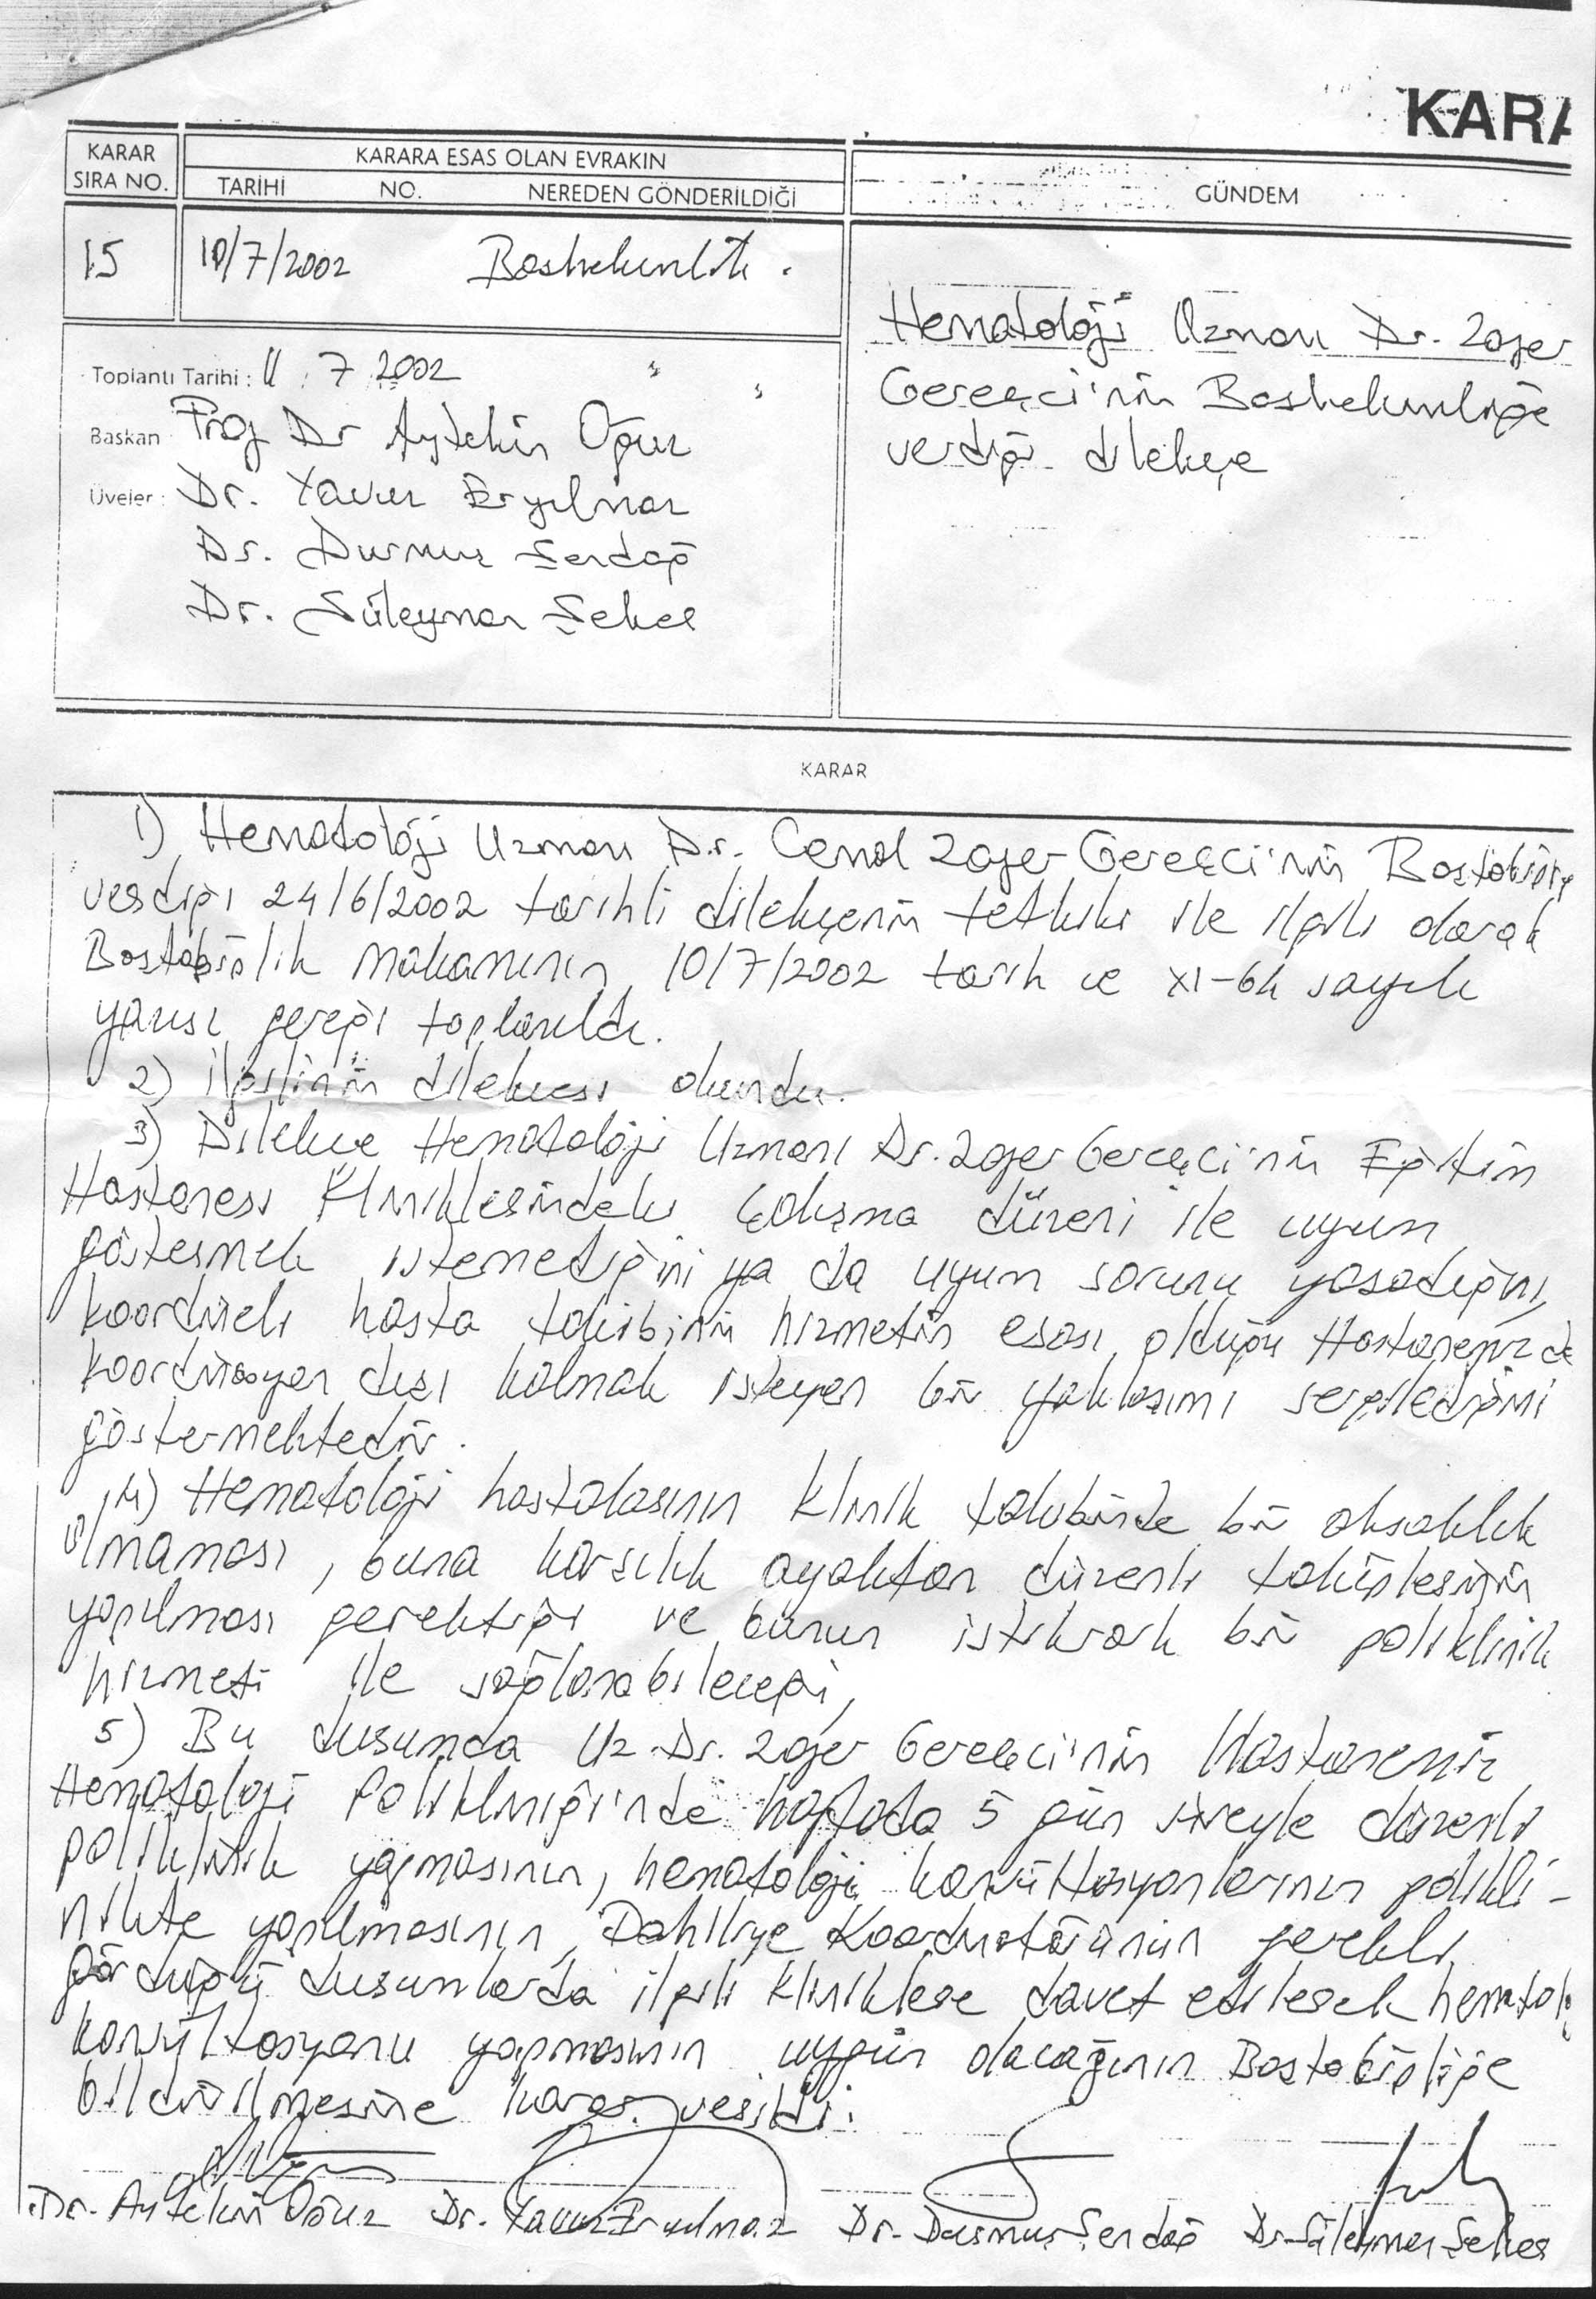 KARA
KARAR SIRA NO.
KARARA ESAS OLAN EVRAKIN
TARİHİ NO. NEREDEN GÖNDERİLDİĞİ
GÜNDEM
15 10/7/2002 Başhekimlik.
Hematoloji Uzmanı Dr. Zafer
Gerekçi'nin Başhekimliğe
verdiği dilekçe
Toplantı Tarihi: 11.7.2002
Başkan Prof Dr Aytekin Oğuz
Üyeler: Dr. Yavuz Eryılmaz
Dr. Durmuş Serdağ
Dr. Süleyman Şeker
KARAR
1) Hematoloji Uzmanı Dr. Cemal Zafer Gerekçi'nin Baştabipliğe
verdiği 24/6/2002 tarihli dilekçenin tetkiki ile ilgili olarak
Baştabiplik makamının 10/7/2002 tarih ve XI-6h sayılı
yazısı gereği toplanıldı.
2) İlgilinin dilekçesi okundu.
3) Dilekçe Hematoloji Uzmanı Dr. Zafer Gerekçi'nin Eğitim
Hastanesi Kliniklerindeki Çalışma düzeni ile uyum
göstermek istemediğini ya da uyum sorunu yaşadığını,
koordineli hasta takibinin hizmetin esası olduğu Hastanemizde
koordinasyon dışı kalmak isteyen bir yaklaşımı sergilediğini
göstermektedir.
4) Hematoloji hastalarının klinik takibinde bir aksaklık
olmaması, buna karşılık ayaktan düzenli takiplerinin
yapılması gerektiği ve bunun istikrarlı bir poliklinik
hizmeti ile sağlanabileceği,
5) Bu durumda Uz. Dr. Zafer Gerekçi'nin Hastanemiz
Hematoloji Polikliniği'nde haftada 5 gün süreyle düzenli
poliklinik yapmasının, hematoloji konsültasyonlarının polikli-
nikte yapılmasının, Dahiliye Koordinatörünün gerekli
gördüğü durumlarda ilgili kliniklere davet edilerek hematoloji
konsültasyonu yapmasının uygun olacağının Baştabipliğe
bildirilmesine karar verildi.
Dr. Aytekin Oğuz Dr. Yavuz Eryılmaz Dr. Durmuş Serdağ Dr. Süleyman Şeker